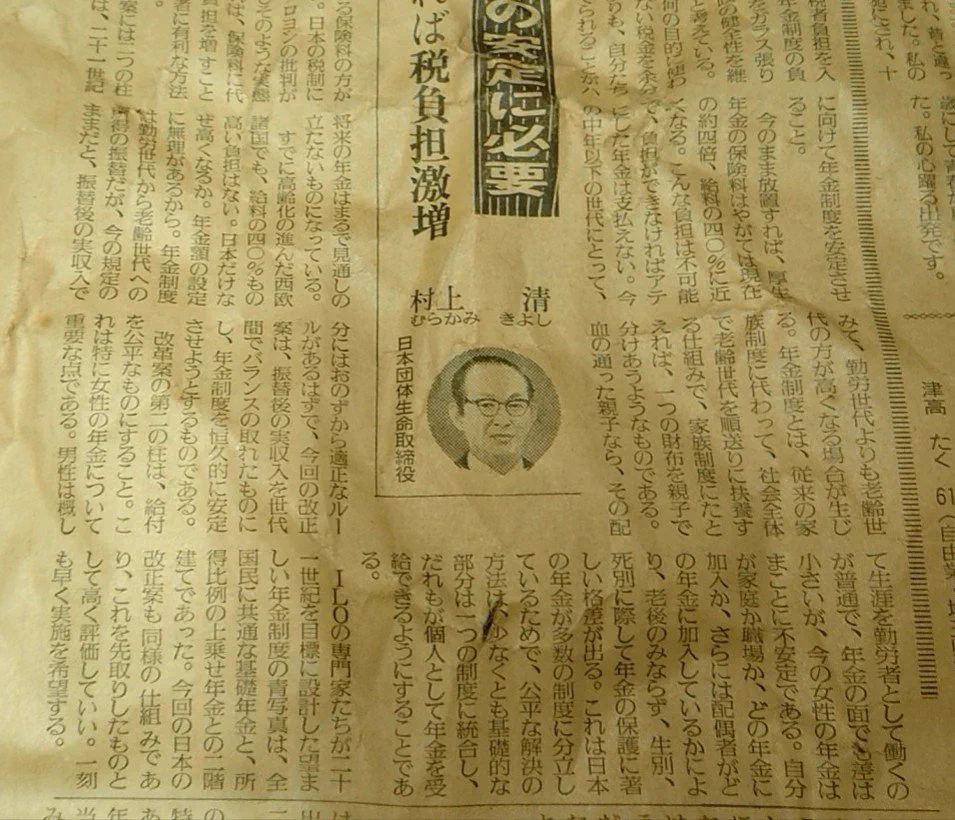 れ、昔と違っ
ました。私の
た。私の心躍る出発です。
津高　たく
61
税者負担を入
年金制度の負
をガラス張り
の健全性を維
と考えている。
何の目的に使わ
ない税金を余分
りも、自分たち
てられることが、
の安定に必要
れば税負担激増
村上　清
むらかみ　きよし
日本団体生命取締役
る保険料の方が
だ。日本の税制に
ロヨンの批判が
そのような実態
ば、保険料に代
負担を増すこと
者に有利な方法
案には二つの柱
は、二十一世紀
に向けて年金制度を安定させ
ること。
今のまま放置すれば、厚生
年金の保険料はやがては現在
の約四倍、給料の四〇％に近
くなる。こんな負担は不可能
で、負担ができなければアテ
にした年金は支払えない。今
の中年以下の世代にとって、
将来の年金はまるで見通しの
立たないものになっている。
すでに高齢化の進んだ西欧
諸国でも、給料の四〇％もの
高い負担はない。日本だけな
ぜ高くなるか。年金額の設定
に無理があるから。年金制度
は勤労世代から老齢世代への
所得の振替だが、今の規定の
ままだと、振替後の実収入で
みて、勤労世代よりも老齢世
代の方が高くなる場合が生じ
る。年金制度とは、従来の家
族制度に代わって、社会全体
で老齢世代を順送りに扶養す
る仕組みで、家族制度にたと
えれば、一つの財布を親子で
分けあうようなものである。
血の通った親子なら、その配
分にはおのずから適正なルー
ルがあるはずで、今回の改正
案は、振替後の実収入を世代
間でバランスの取れたものに
し、年金制度を恒久的に安定
させようとするものである。
改革案の第二の柱は、給付
を公平なものにすること。こ
れは特に女性の年金について
重要な点である。男性は概し
て生涯を勤労者として働くの
が普通で、年金の面でも差は
小さいが、今の女性の年金は
まことに不安定である。自分
が家庭か職場か、どの年金に
加入か、さらには配偶者がど
の年金に加入しているかによ
り、老後のみならず、生別、
死別に際して年金の保護に著
しい格差が出る。これは日本
の年金が多数の制度に分立し
ているためで、公平な解決の
方法は、少なくとも基礎的な
部分は一つの制度に統合し、
だれもが個人として年金を受
給できるようにすることであ
る。
ＩＬＯの専門家たちが二十
一世紀を目標に設計した望ま
しい年金制度の青写真は、全
国民に共通な基礎年金と、所
得比例の上乗せ年金との二階
建てであった。今回の日本の
改正案も同様の仕組みであ
り、これを先取りしたものと
して高く評価していい。一刻
も早く実施を希望する。